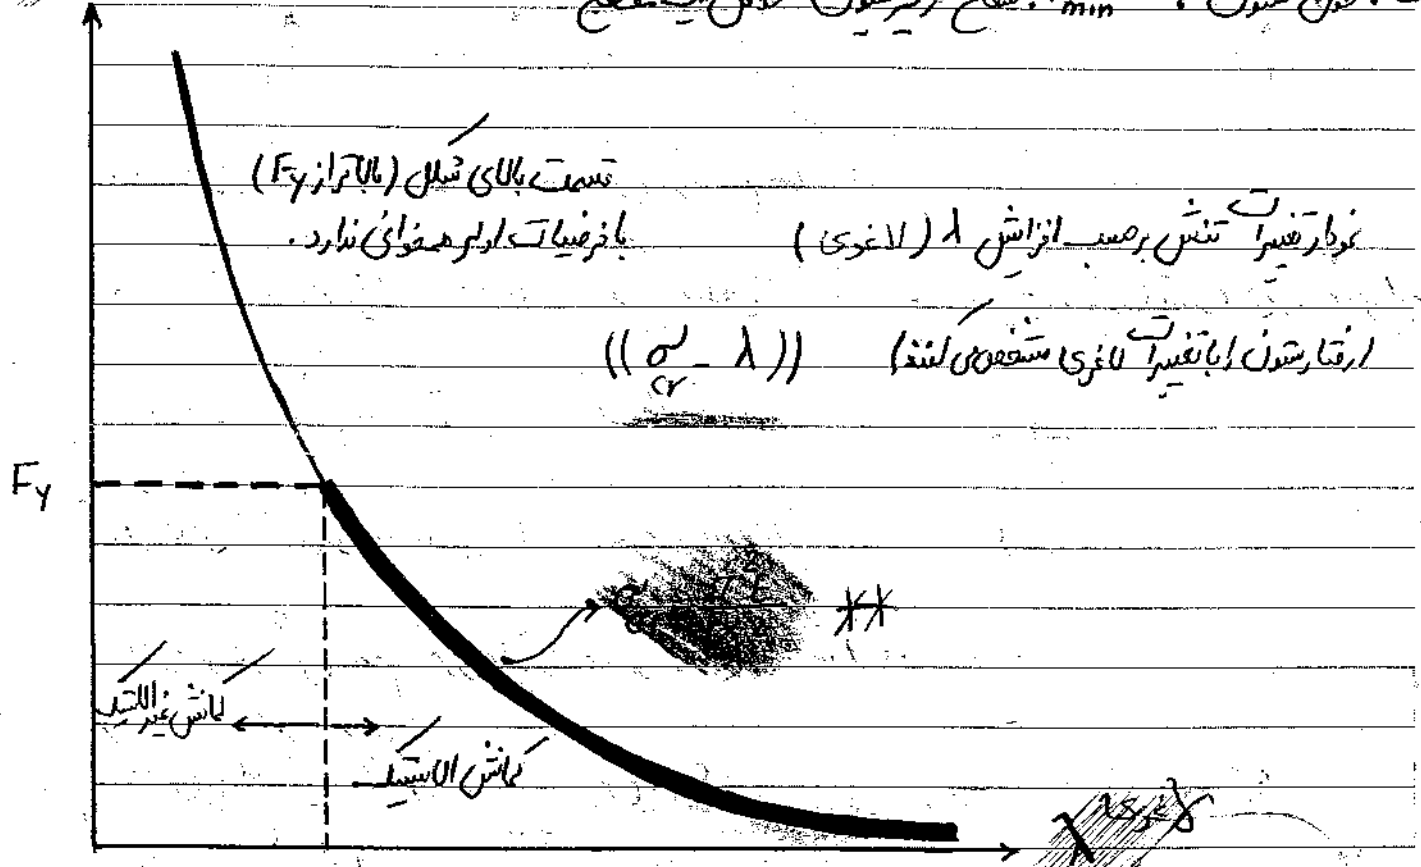 طول ستون
min
سطح
قسمت بالای شکل (بالاتر از Fy)
با فرضیات اولیه همخوانی ندارد.
نمودار تغییرات تنش برحسب افزایش λ (لاغری)
(رفتار ستون را با تغییرات لاغری مشخص می کنند) ((σcr - λ))
Fy
**
کمانش غیرالاستیک
کمانش الاستیک
λ لاغری